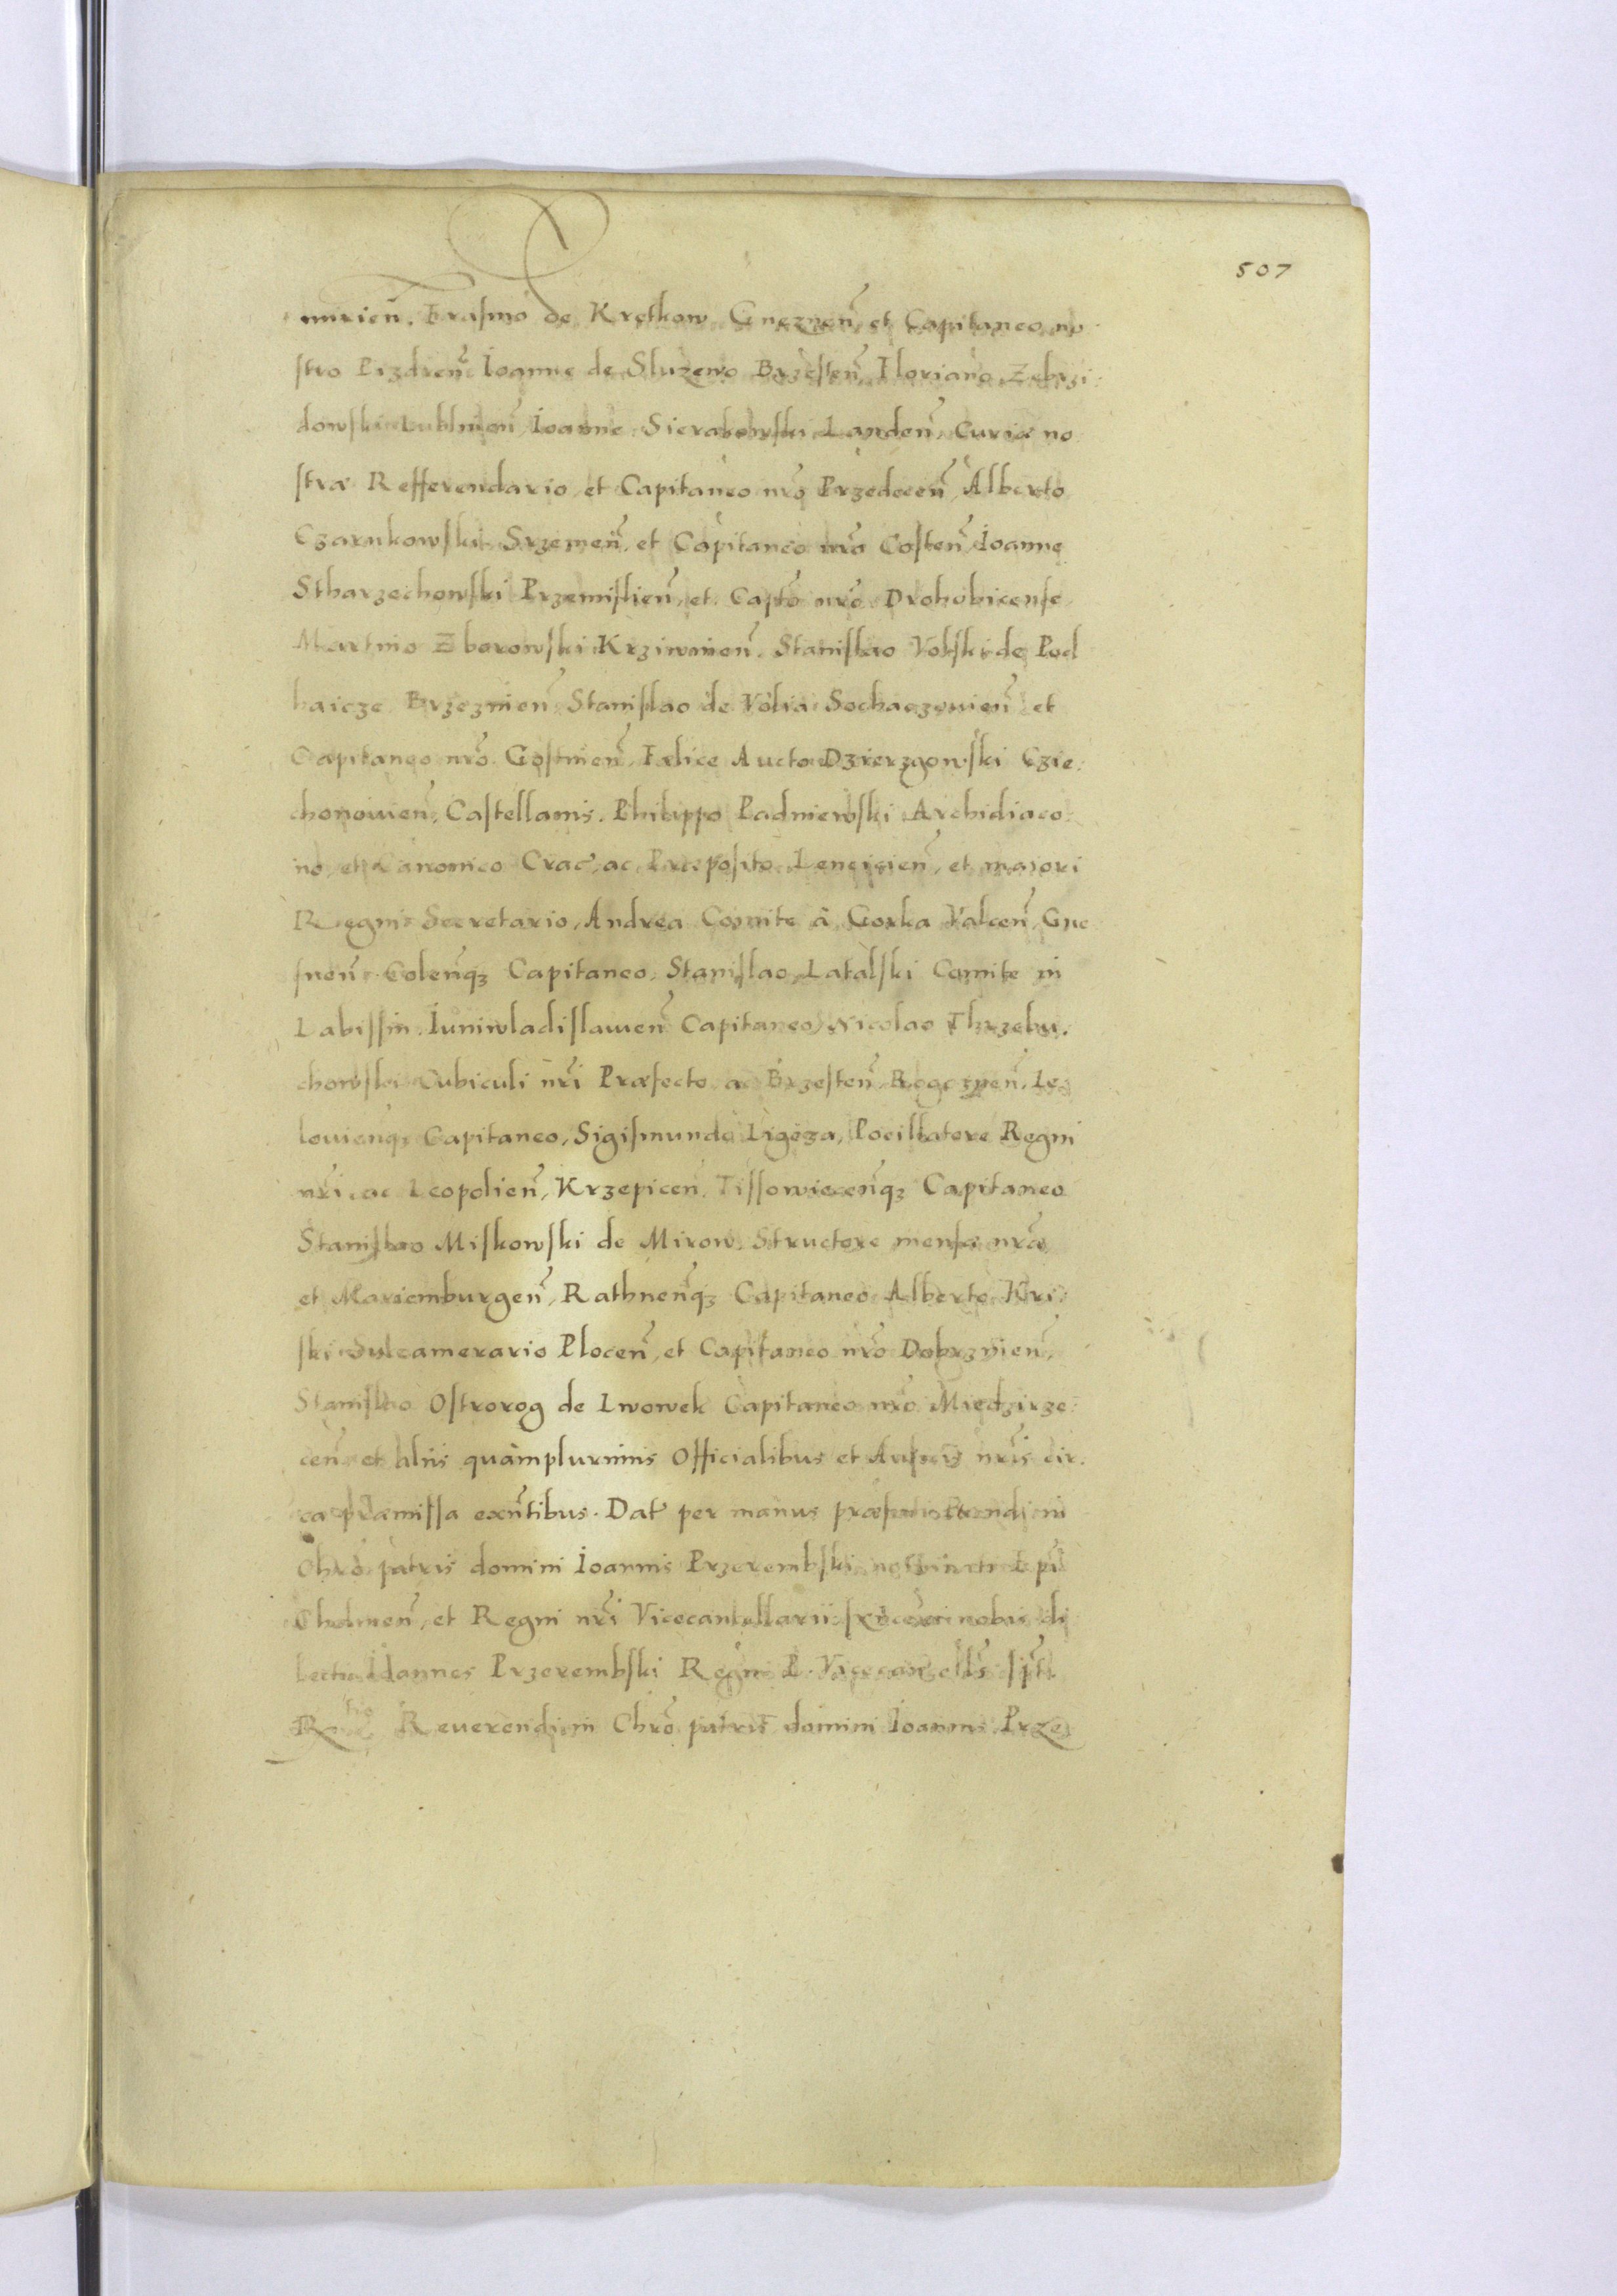 507
mirien̄. Erasmo de Kretkow Gneznen̄ et Capitaneo no
stro Pizdren̄ Ioanne de Sluzewo Brzesten̄, Floriano Zebrzi:
dowski Lublinen̄, Ioanne Sierakowski Landen̄, Curiæ no
stræ Refferendario, et Capitaneo nr̄o Przedecen̄, Alberto
Czarnkowski Srzemen̄, et Capitaneo nr̄o Costen̄, Ioanne
Stharzechowski Przemislien̄, et Capt̄o nr̄o Drohobicense
Martino Zborowski Krziwinen̄. Stanislao Volski de Pod
haicze Brzezinen̄ Stanislao de Volia Sochaczevien̄ et
Capitaneo nr̄o Gostinen̄, Felice Aucto Dzierzgowski Czie:
chonowien̄, Castellanis. Philippo Padniewski Archidiaco:
no, et Canonico Crac̄, ac Præposito Lencicien̄, et maiori
Regni Secretario, Andrea Comite à Gorka Valcen̄, Gne
snen̄ Colen̄qz Capitaneo, Stanislao Latalski Comite in
Labissin Iuniwladislawien̄ Capitaneo, Nicolao Thrzebu.
chowski Cubiculi nr̄i Præfecto, ac Brzesten̄, Rogoznen̄, Le
lovienqz Capitaneo, Sigismundo Ligęza, Pocillatore Regni
nr̄i, ac Leopolien̄, Krzepicen̄, Tissowiecen̄qz Capitaneo
Stanislao Miskowski de Mirow, Structore mensæ nr̄æ
et Mariemburgen̄, Rathnen̄qz Capitaneo Alberto Kri:
ski Succamerario Plocen̄, et Capitaneo nr̄o Dobrzynien̄,
Stanislao Ostrorog de Lwowek Capitaneo nr̄o Miedzirze:
cen̄ et aliis quàmplurimis Officialibus et Aulicis nr̄is cir.
ca præmissa exn̄tibus. Dat̄ per manus præfati Rr̄endi in
Chr̄o patris domini Ioannis Przerembski nominati Ep̄i
Chelmen̄, et Regni nr̄i Vicecancellarii syncerè nobis di
lecti. Ioannes Przerembski Regni P. Vicecancell̄s sp̄t.
R̄tio Reverendi in Chr̄o patris domini Ioannis Prze